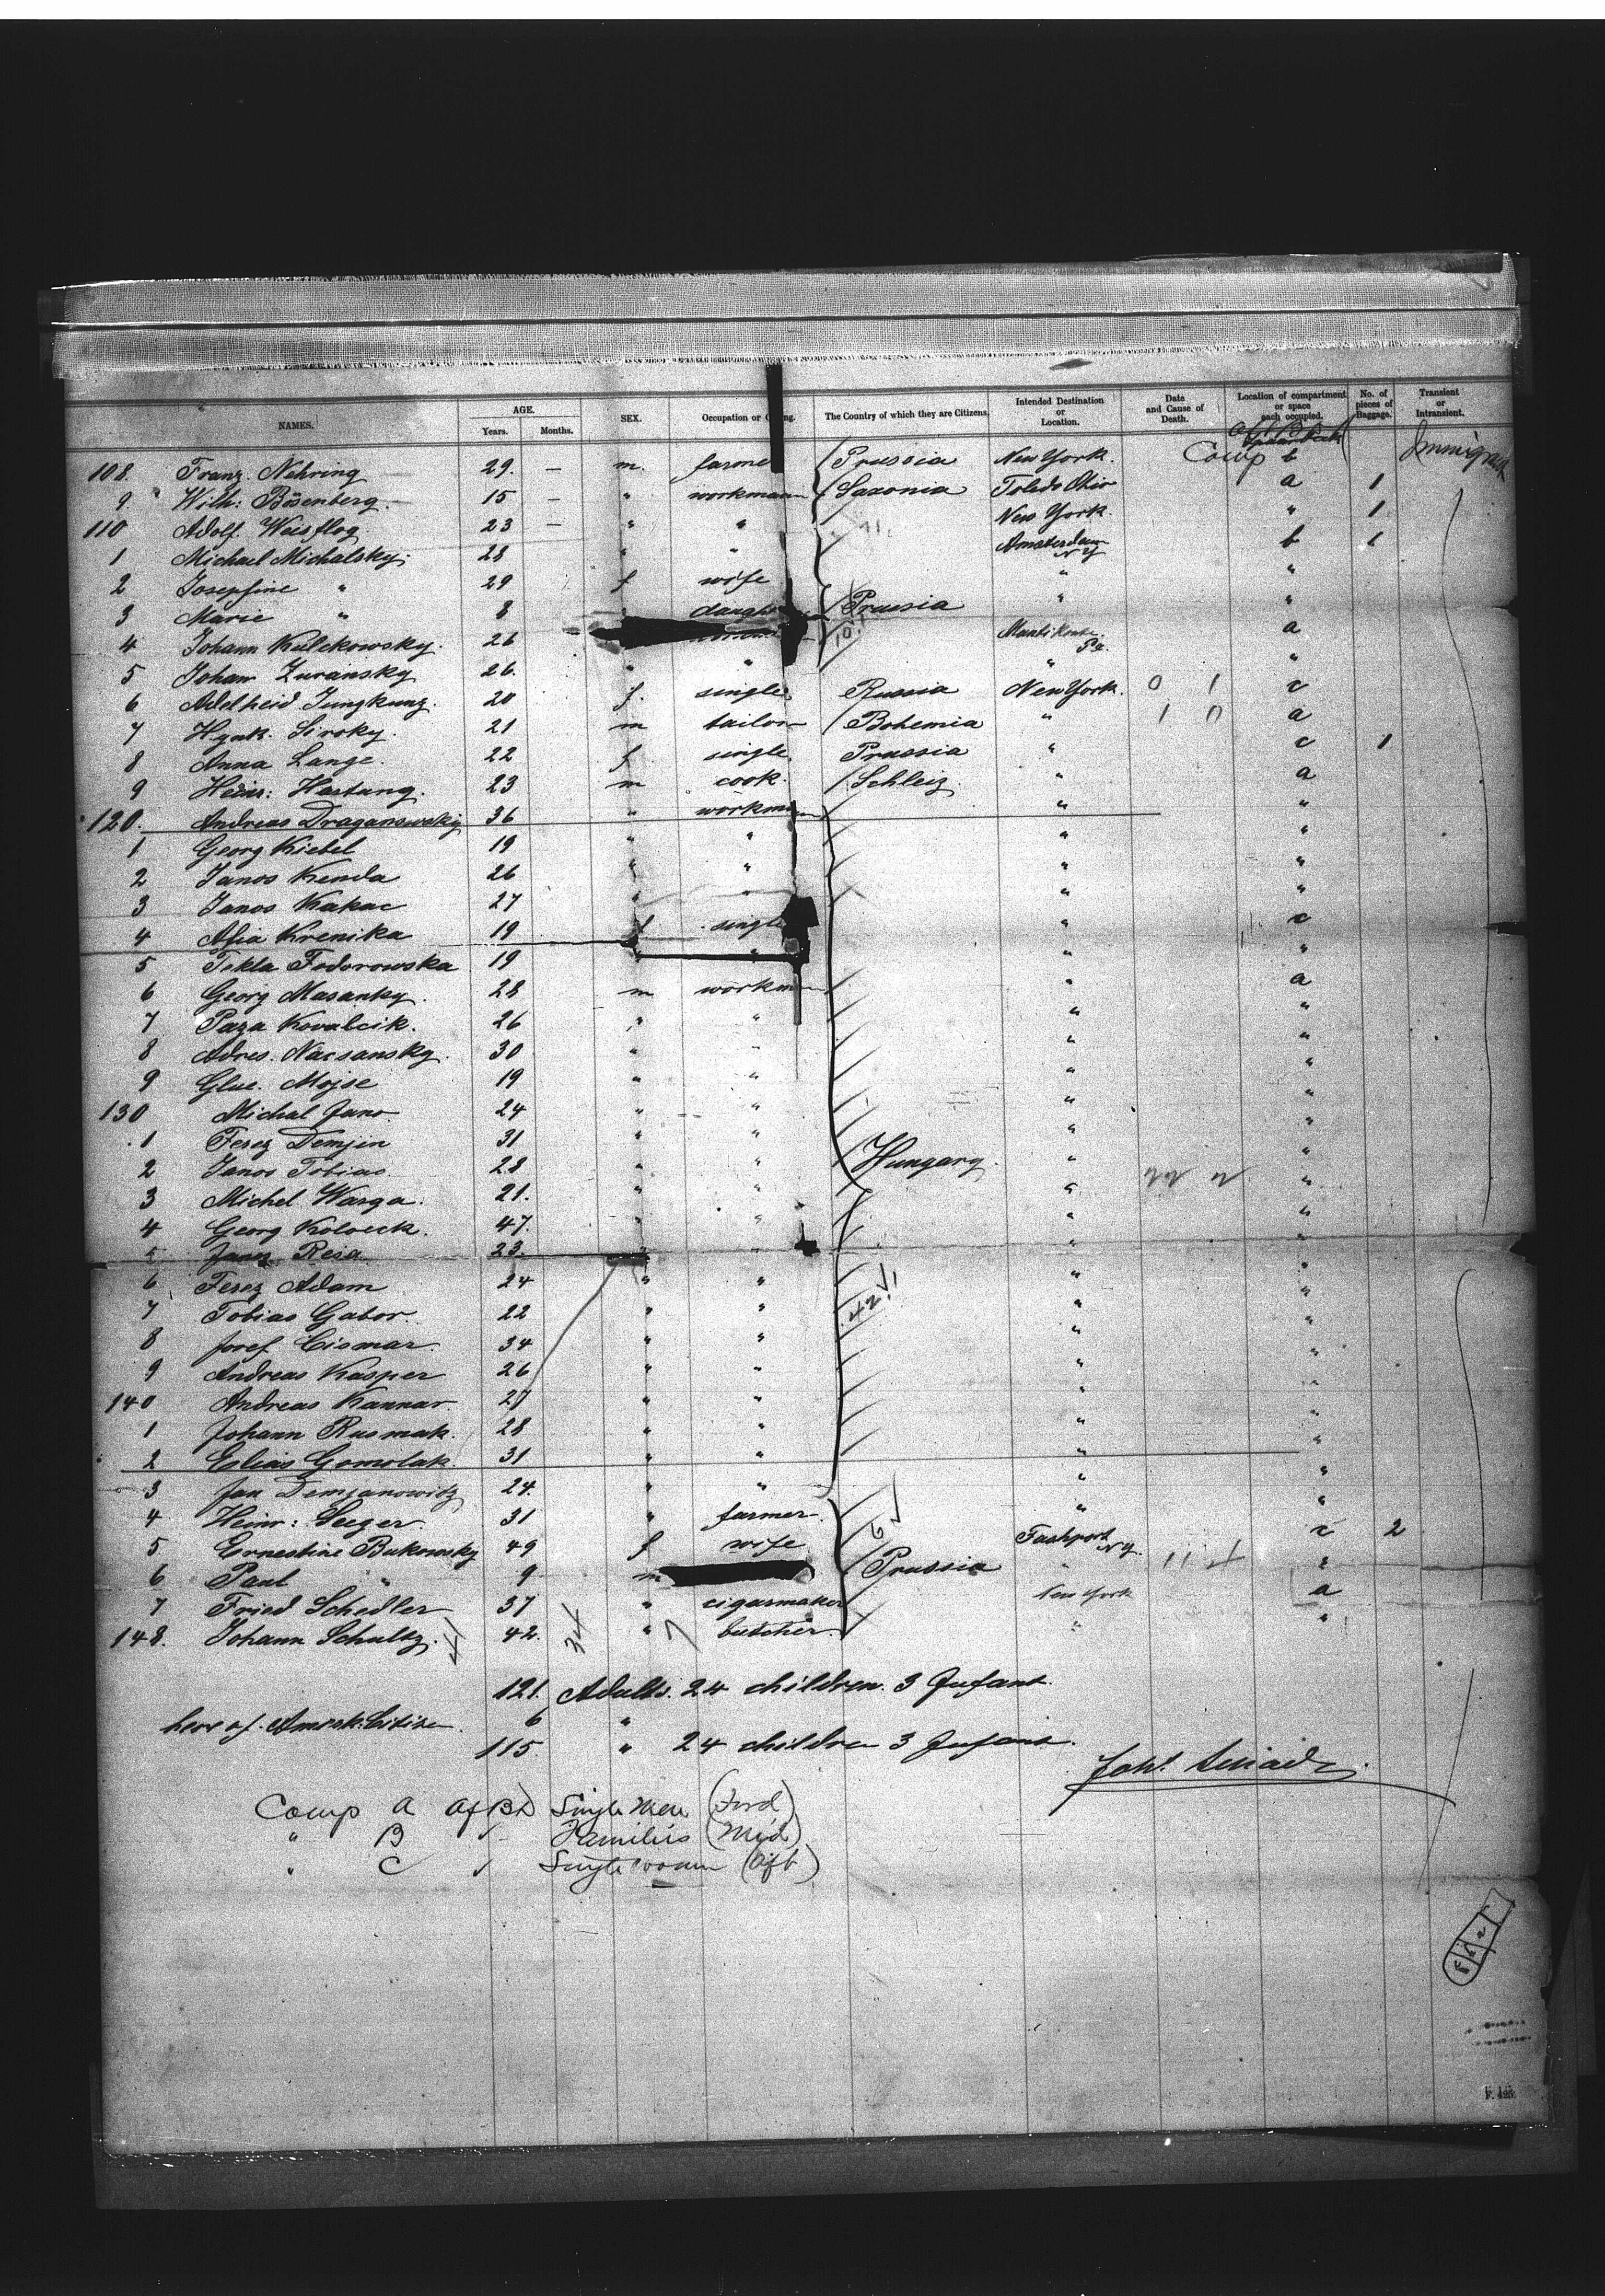 NAMES. AGE. Years. Months. SEX. Occupation or The Country of which they are Citizens. Intended Destination or Location. Date and Cause of Death. Location of compartment or space each occupied. No. of pieces of Baggage. Transient or Intransient.
108. Franz. Nehring 29. — m. farmer Prussia New York. Comp b
9 Wilh: Bösenberg. 15 — " workman Saxonia Toledo Ohio a 1
110 Adolf. Weisflog 23 — " " New York. " 1
1 Michael Michalsky. 28 " " Amsterdam N Y b 1
2 Josephine " 29 f wife " "
3 Marie " 8 Prussia " "
4 Johann Kulckowsky. 26 Pa. a
5 Johann Zuransky 26. " " " "
6 Adelheid Jungkunz. 20 f. single Russia New York. 0 1 c
7 Hynk. Siroky. 21 m tailor Bohemia " 1 0 a
8 Anna Lange. 22 f single. Prussia " c 1
9 Heinr: Hartung. 23 m cook. Schleiz " a
120. Andreas Draganowsky 36 " workman " "
1 Georg Kiebel 19 " " " "
2 Janos Kenda 26 " " " "
3 Janos Kakac 27 " " " "
4 Afia Krenika 19 f single " c
5 Tekla Fodorowska 19 " " "
6 Georg Masanky. 28 m workman " a
7 Paza Kovalcik. 26 " " " "
8 Adres. Nacsansky. 30 " " " "
9 Glue. Mojse 19 " " " "
130 Michal Jano 24 " " " "
1 Ferez Demjen 31 " " " "
2 Janos Tobias. 28 " " Hungary. " "
3 Michel Warga. 21. " " " "
4 Georg Koloeck. 47. " " " "
5 Janos Resa 23. " " " "
6 Ferez Adam 24 " " " "
7 Tobias Gabor. 22 " " 42 " "
8 Josef Cismar. 34 " " " "
9 Andreas Kasper 26 " " " "
140 Andreas Kannar. 27 " " " "
1 Johann Rusmak. 28 " " " "
2 Elias Gomolak 31 " " " "
3 Jan Demjanowitz 24. " " " "
4 Heinr: Seeger. 31 " farmer. " "
5 Ernestine Bukowsky 49 f wife N Y. c 2
6 Paul " 9 m Prussia " "
7 Fried Schedler 37 " cigarmaker New York a
148. Johann Schultz. 42. " butcher. " "
121. Adults. 24 children. 3 Infant.
6 "
115. " 24 children 3 Infant.
Comp A Single Men (Ford)
" B Families (Mid)
" C Single women (Aft)